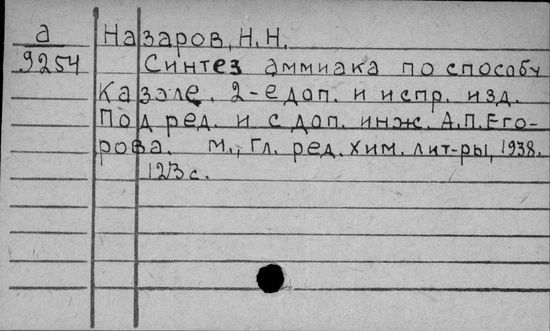 а Назаров, Н.Н.
9254 Синтез аммиака по способу
Казале. 2-е доп. и испр. изд.
Под ред. и с доп. инж. А.П. Его-
рова. М., Гл. ред. хим. лит-ры, 1938.
123 с.